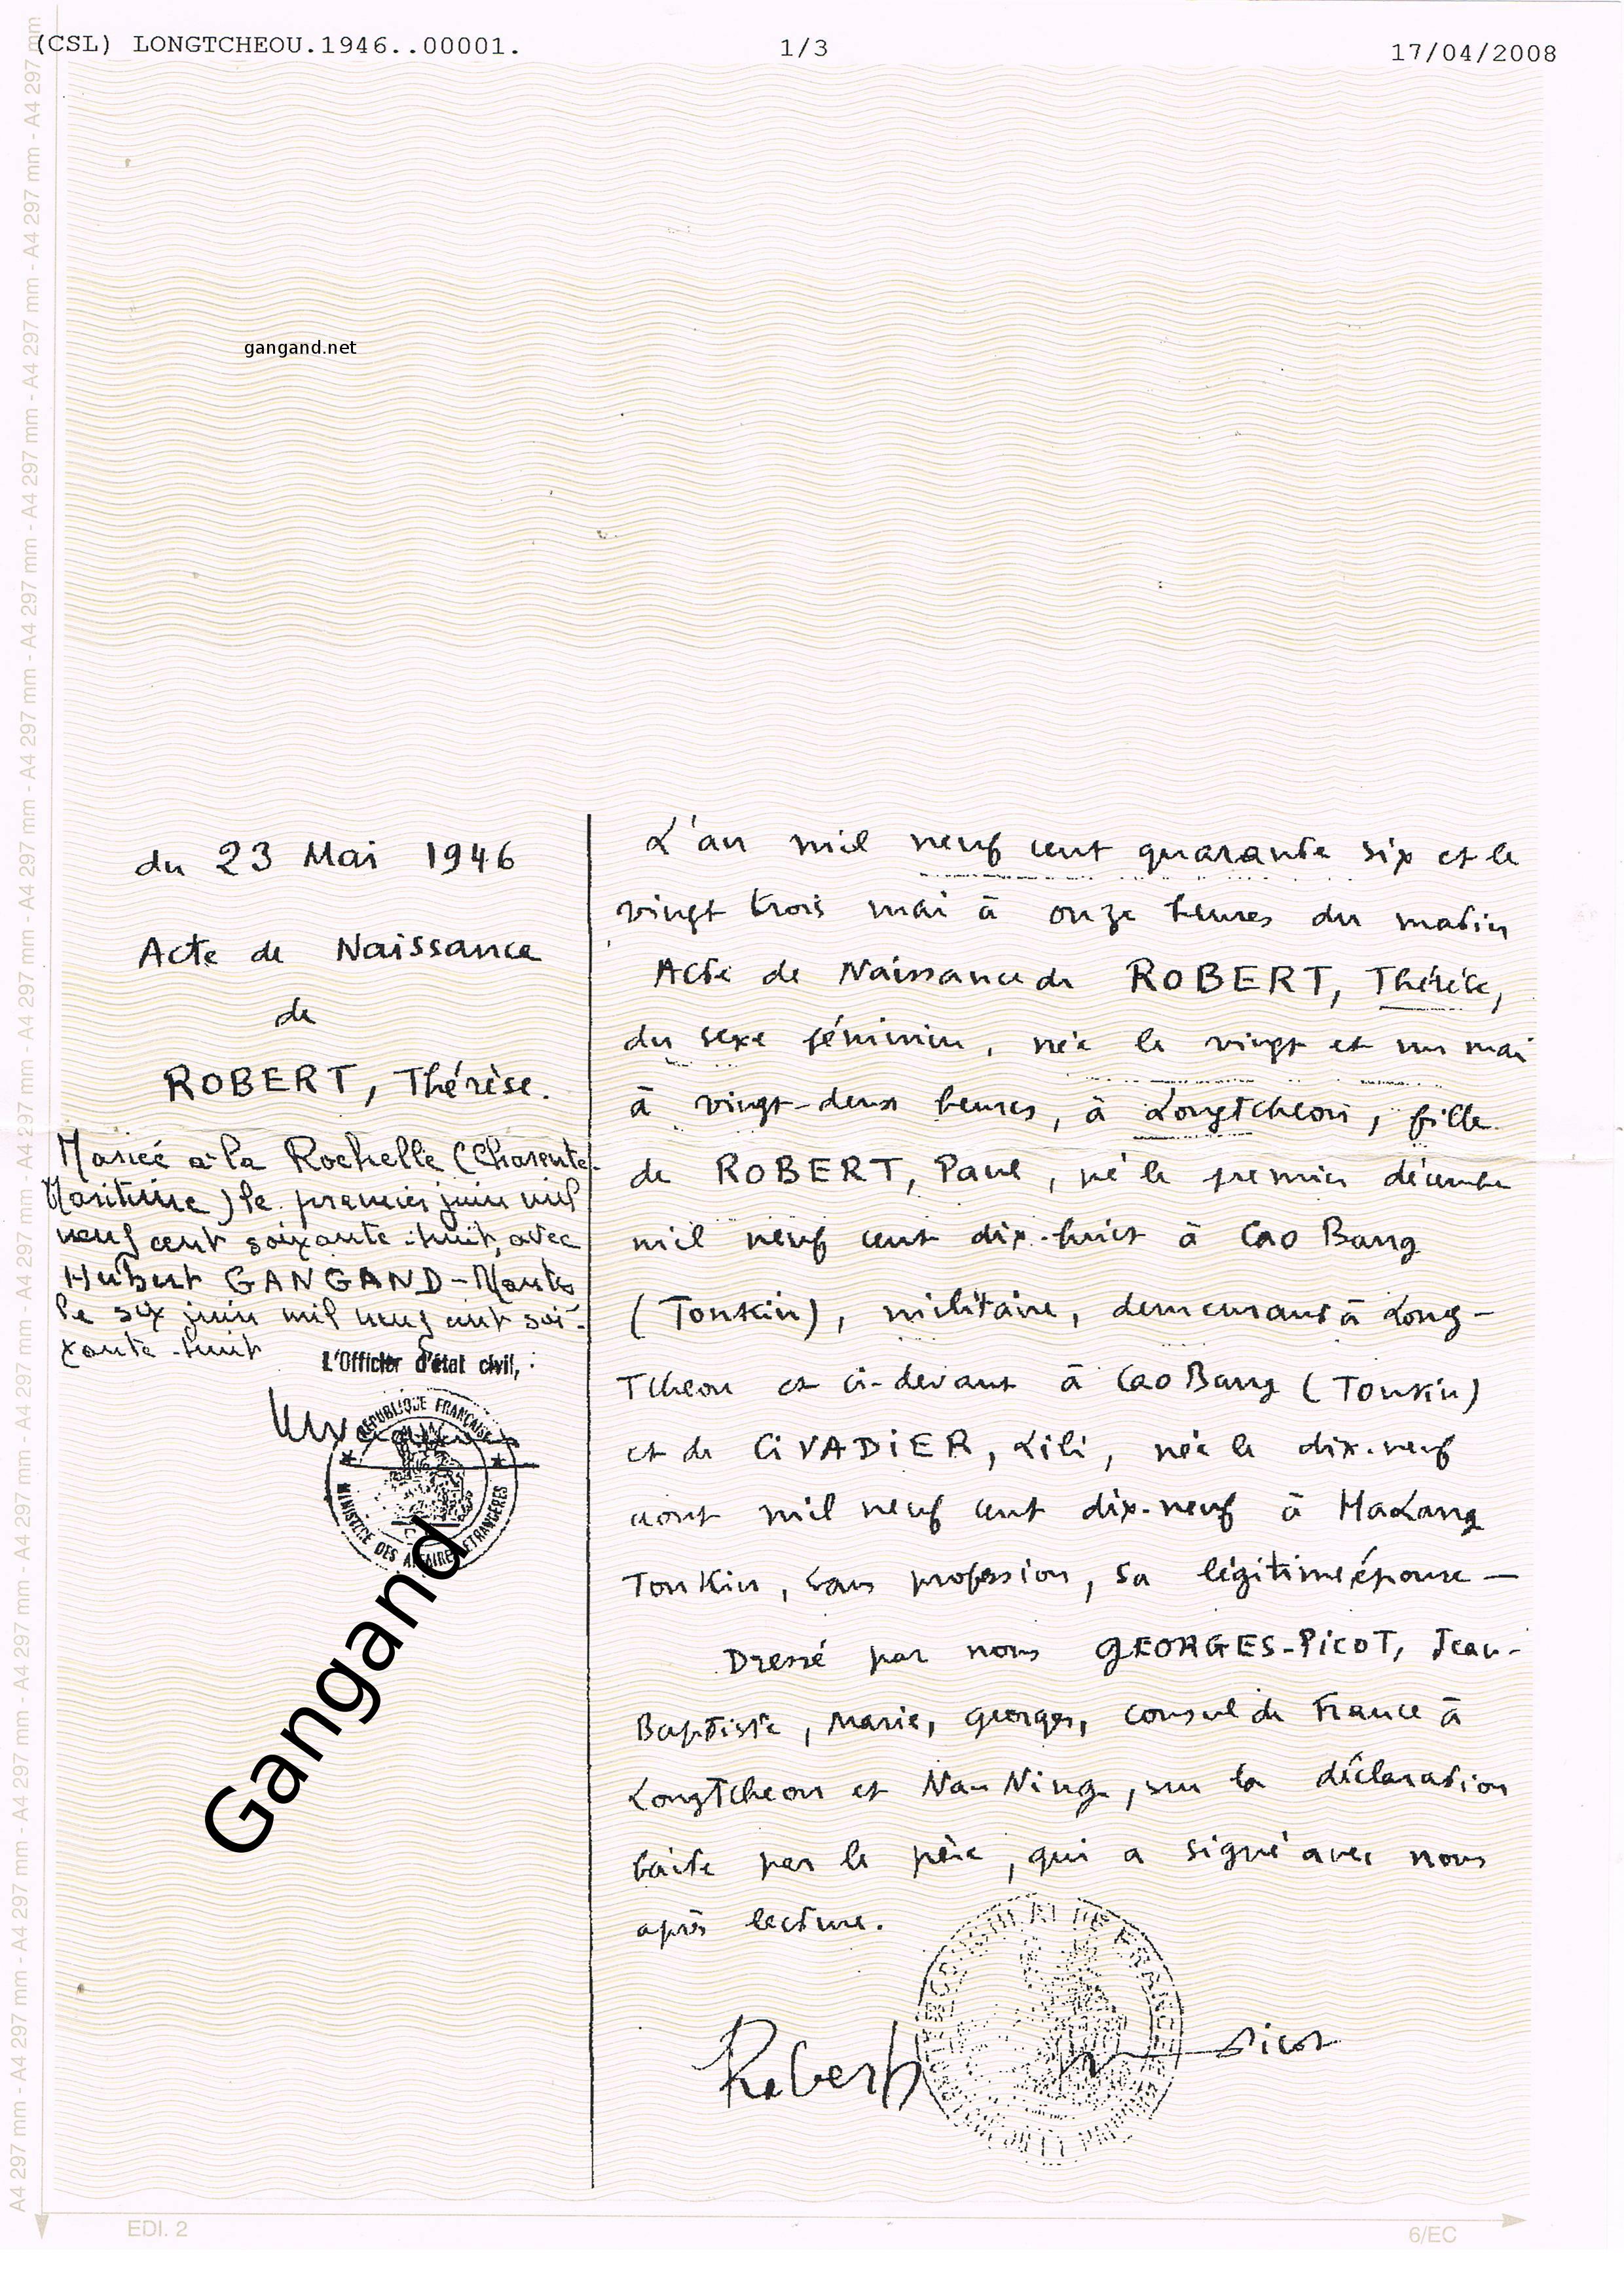 (CSL) LONGTCHEOU.1946..00001. 1/3 17/04/2008
A4 297 mm - A4 297 mm - A4 297 mm - A4 297 mm - A4 297 mm - A4 297 mm - A4 297 mm - A4 297 mm - A4 297 mm - A4 297 mm - A4 297 mm - A4 297 mm
gangand.net
du 23 Mai 1946
Acte de Naissance
de
ROBERT, Thérèse.
Mariée à la Rochelle (Charente-
Maritime) le premier juin mil
neuf cent soixante-huit, avec
Hubert GANGAND - Nantes
le six juin mil neuf cent soi-
xante-huit
L'Officier d'état civil,
REPUBLIQUE FRANÇAISE
MINISTERE DES AFFAIRES ETRANGERES
Gangand
L'an mil neuf cent quarante six et le
vingt trois mai à onze heures du matin
Acte de Naissance de ROBERT, Thérèse,
du sexe féminin, née le vingt et un mai
à vingt-deux heures, à Longtcheou, fille
de ROBERT, Paul, né le premier décembre
mil neuf cent dix-huit à Cao Bang
(Tonkin), militaire, demeurant à Long-
Tcheou et ci-devant à Cao Bang (Tonkin)
et de CIVADIER, Lili, née le dix-neuf
aout mil neuf cent dix-neuf à HaLang
TonKin, sans profession, sa légitime épouse —
Dressé par nous GEORGES-PICOT, Jean-
Baptiste, Marie, Georges, consul de France à
LongTcheou et Nan Ning, sur la déclaration
faite par le père, qui a signé avec nous
après lecture.
DE FRANCE
Robert Picot
EDI. 2 6/EC